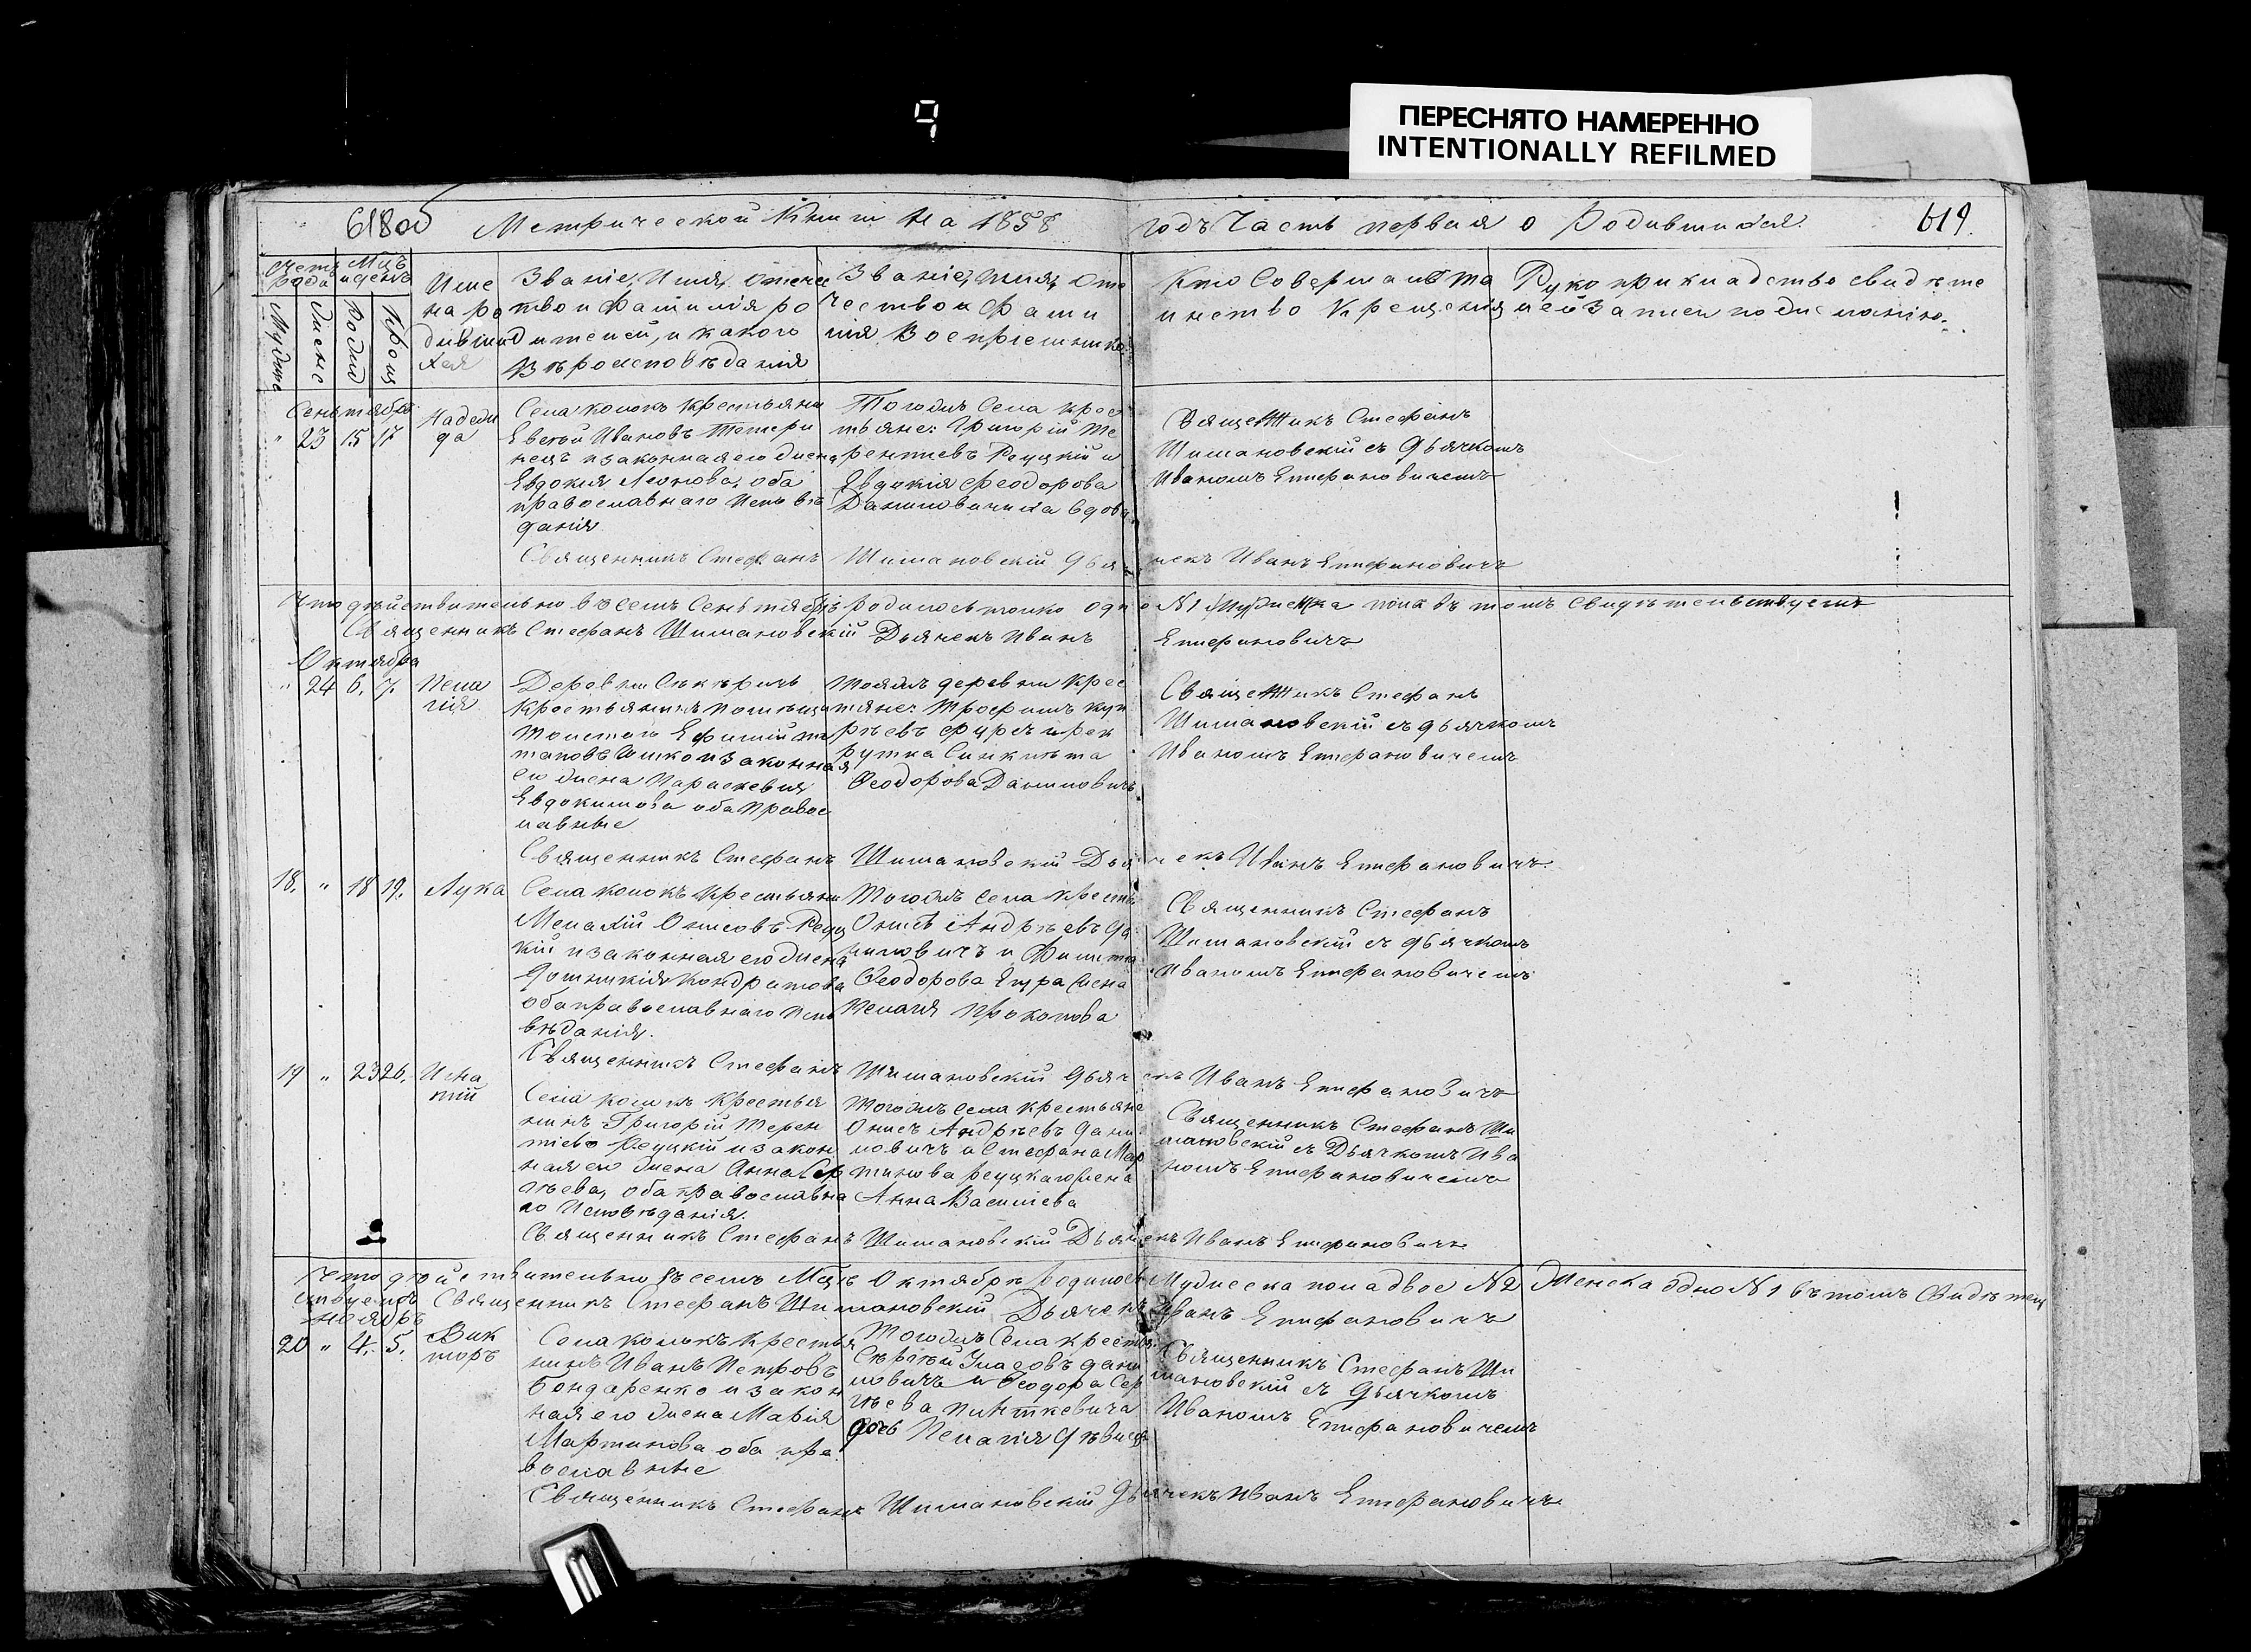 9
ПЕРЕСНЯТО НАМЕРЕННО
INTENTIONALLY REFILMED
618об Метрической Книги на 1858 годъ Часть первая о Родившихся. 619.
Счетъ рода
Мцъ и день
Мужеска
Женска
Родил
Крещ
Име
на ро
дивши
хся
Званіе, Имя, отече
тво и Фамилія ро
дителей, и какого
Вѣроисповѣданія
Званіе, имя, Оте
чество и Фами
лія Воспріемнико
Кто Совершалъ та
инство Крещенія
Рукоприкладство свидѣте
лей Записи по желанію.
Сентября
" 23 15 17
Надеж
да
Села колокъ Крестьянин
Евсѣй Ивановъ
и законная его жена
Евдокія Леонова, оба
православнаго Испов
данія
Тогожъ Села крес
тьяне: Григорій Те
рентіевъ Рецкій и
Евдокія Феодорова
Даниловичика вдова
Священникъ Стефанъ
Шимановскій съ Дьячкомъ
Иваномъ Епифановичемъ
Священникъ Стефанъ Шимановскій Дьячекъ Иванъ Епифановичъ
Что дѣйствительно въ семъ Сентябрѣ родилось только одно №1 пола въ томъ свидѣтельствуемъ
Священникъ Стефанъ Шимановскій Дьячекъ Иванъ Епифановичъ
Октября
" 24 6. 7.
Пела
гія
Деревни
Крестьянинъ помѣщи
Толстого Ефимій
и законная
его жена Параскевия
Евдокимова оба Правос
лавные
Тояжъ деревни Крес
тяне: Трофимъ
рутка
Феодорова Даниловичъ
Священникъ Стефанъ
Шимановскій съ дьячкомъ
Иваномъ Епифановичемъ
Священникъ Стефанъ Шимановскій Дьячекъ Иванъ Епифановичъ.
18. " 18 19. Лука
Села колокъ Крестьянин
Онисовъ Рец
кій и законная его жена
Домникія Кондратова
оба православнаго Испо
вѣданія.
Тогожъ села Кресть
Онисъ Андрѣевъ Да
ниловичъ и
Феодорова жена
Пелагія Прокопова
Священникъ Стефанъ
Шимановскій съ дьячкомъ
Иваномъ Епифановичемъ
Священникъ Стефанъ Шимановскій Дьячекъ Иванъ Епифановичъ
19 " 23 26.
Игна
тій
Села колокъ Крестья
нинъ Григорій Терен
тіевъ Рецкій и закон
ная его жена Анна Сер
гѣева, оба православна
го Исповѣданія.
Тогожъ села крестьяне
Онисъ Андрѣевъ Дани
ловичъ и Стефана Мар
тинова Рецкаго жена
Анна Василіева
Священникъ Стефанъ Ши
мановскій съ Дьячкомъ Ива
номъ Епифановичемъ
Священникъ Стефанъ Шимановскій Дьячекъ Иванъ Епифановичъ
Что дѣйствительно въ семъ Мцѣ Октябрѣ родилось Мужеска пола двое №2 Женска одно №1 въ томъ Свидѣтель
ствуемъ Священникъ Стефанъ Шимановскій Дьячекъ Иванъ Епифановичъ
Ноябрь
20 " 4. 5.
Вик
торъ
Села колокъ Крестья
нинъ Иванъ Петровъ
Бондаренко и закон
ная его жена Марія
Мартинова оба пра
вославные
Тогожъ Села крестья
Сергѣй Власовъ Дани
ловичъ и Феодора Сер
гѣева
дочь Пелагія дѣвица
Священникъ Стефанъ Ши
мановскій съ Дьячкомъ
Иваномъ Епифановичемъ
Священникъ Стефанъ Шимановскій Дьячекъ Иванъ Епифановичъ